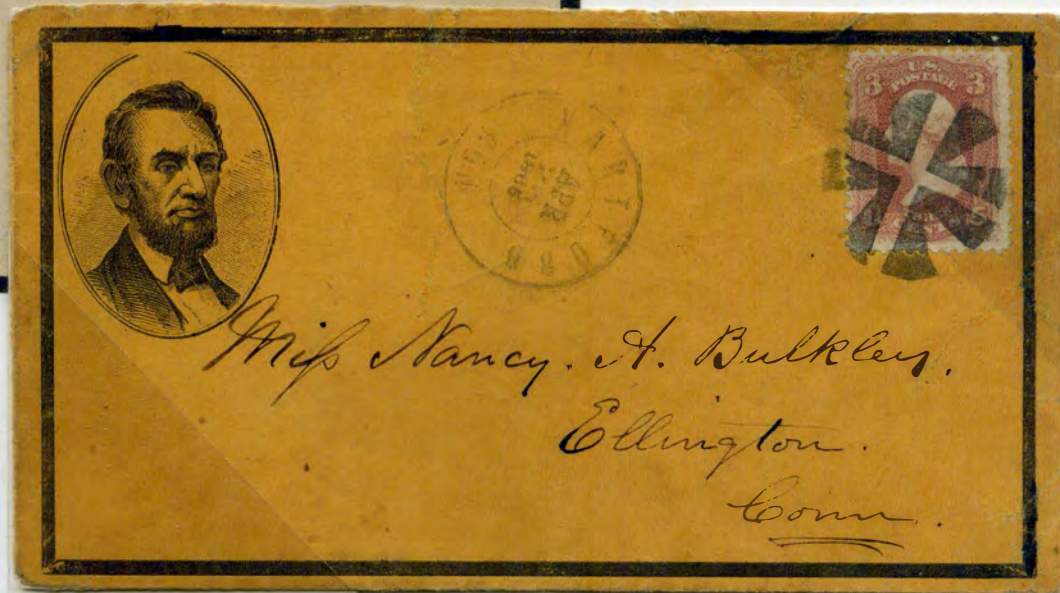 U.S.
POSTAGE
3 3
HARTFORD CONN
APR
Miss Nancy. A. Bulkley.
Ellington.
Conn.